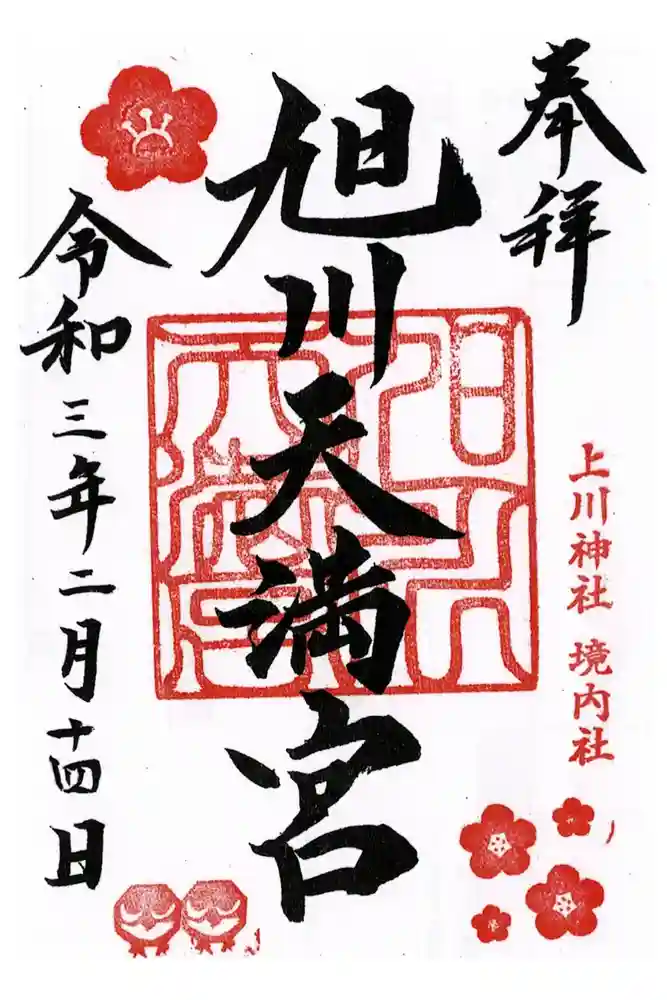 奉拝
上川神社 境内社
旭川天満宮
令和三年二月十四日